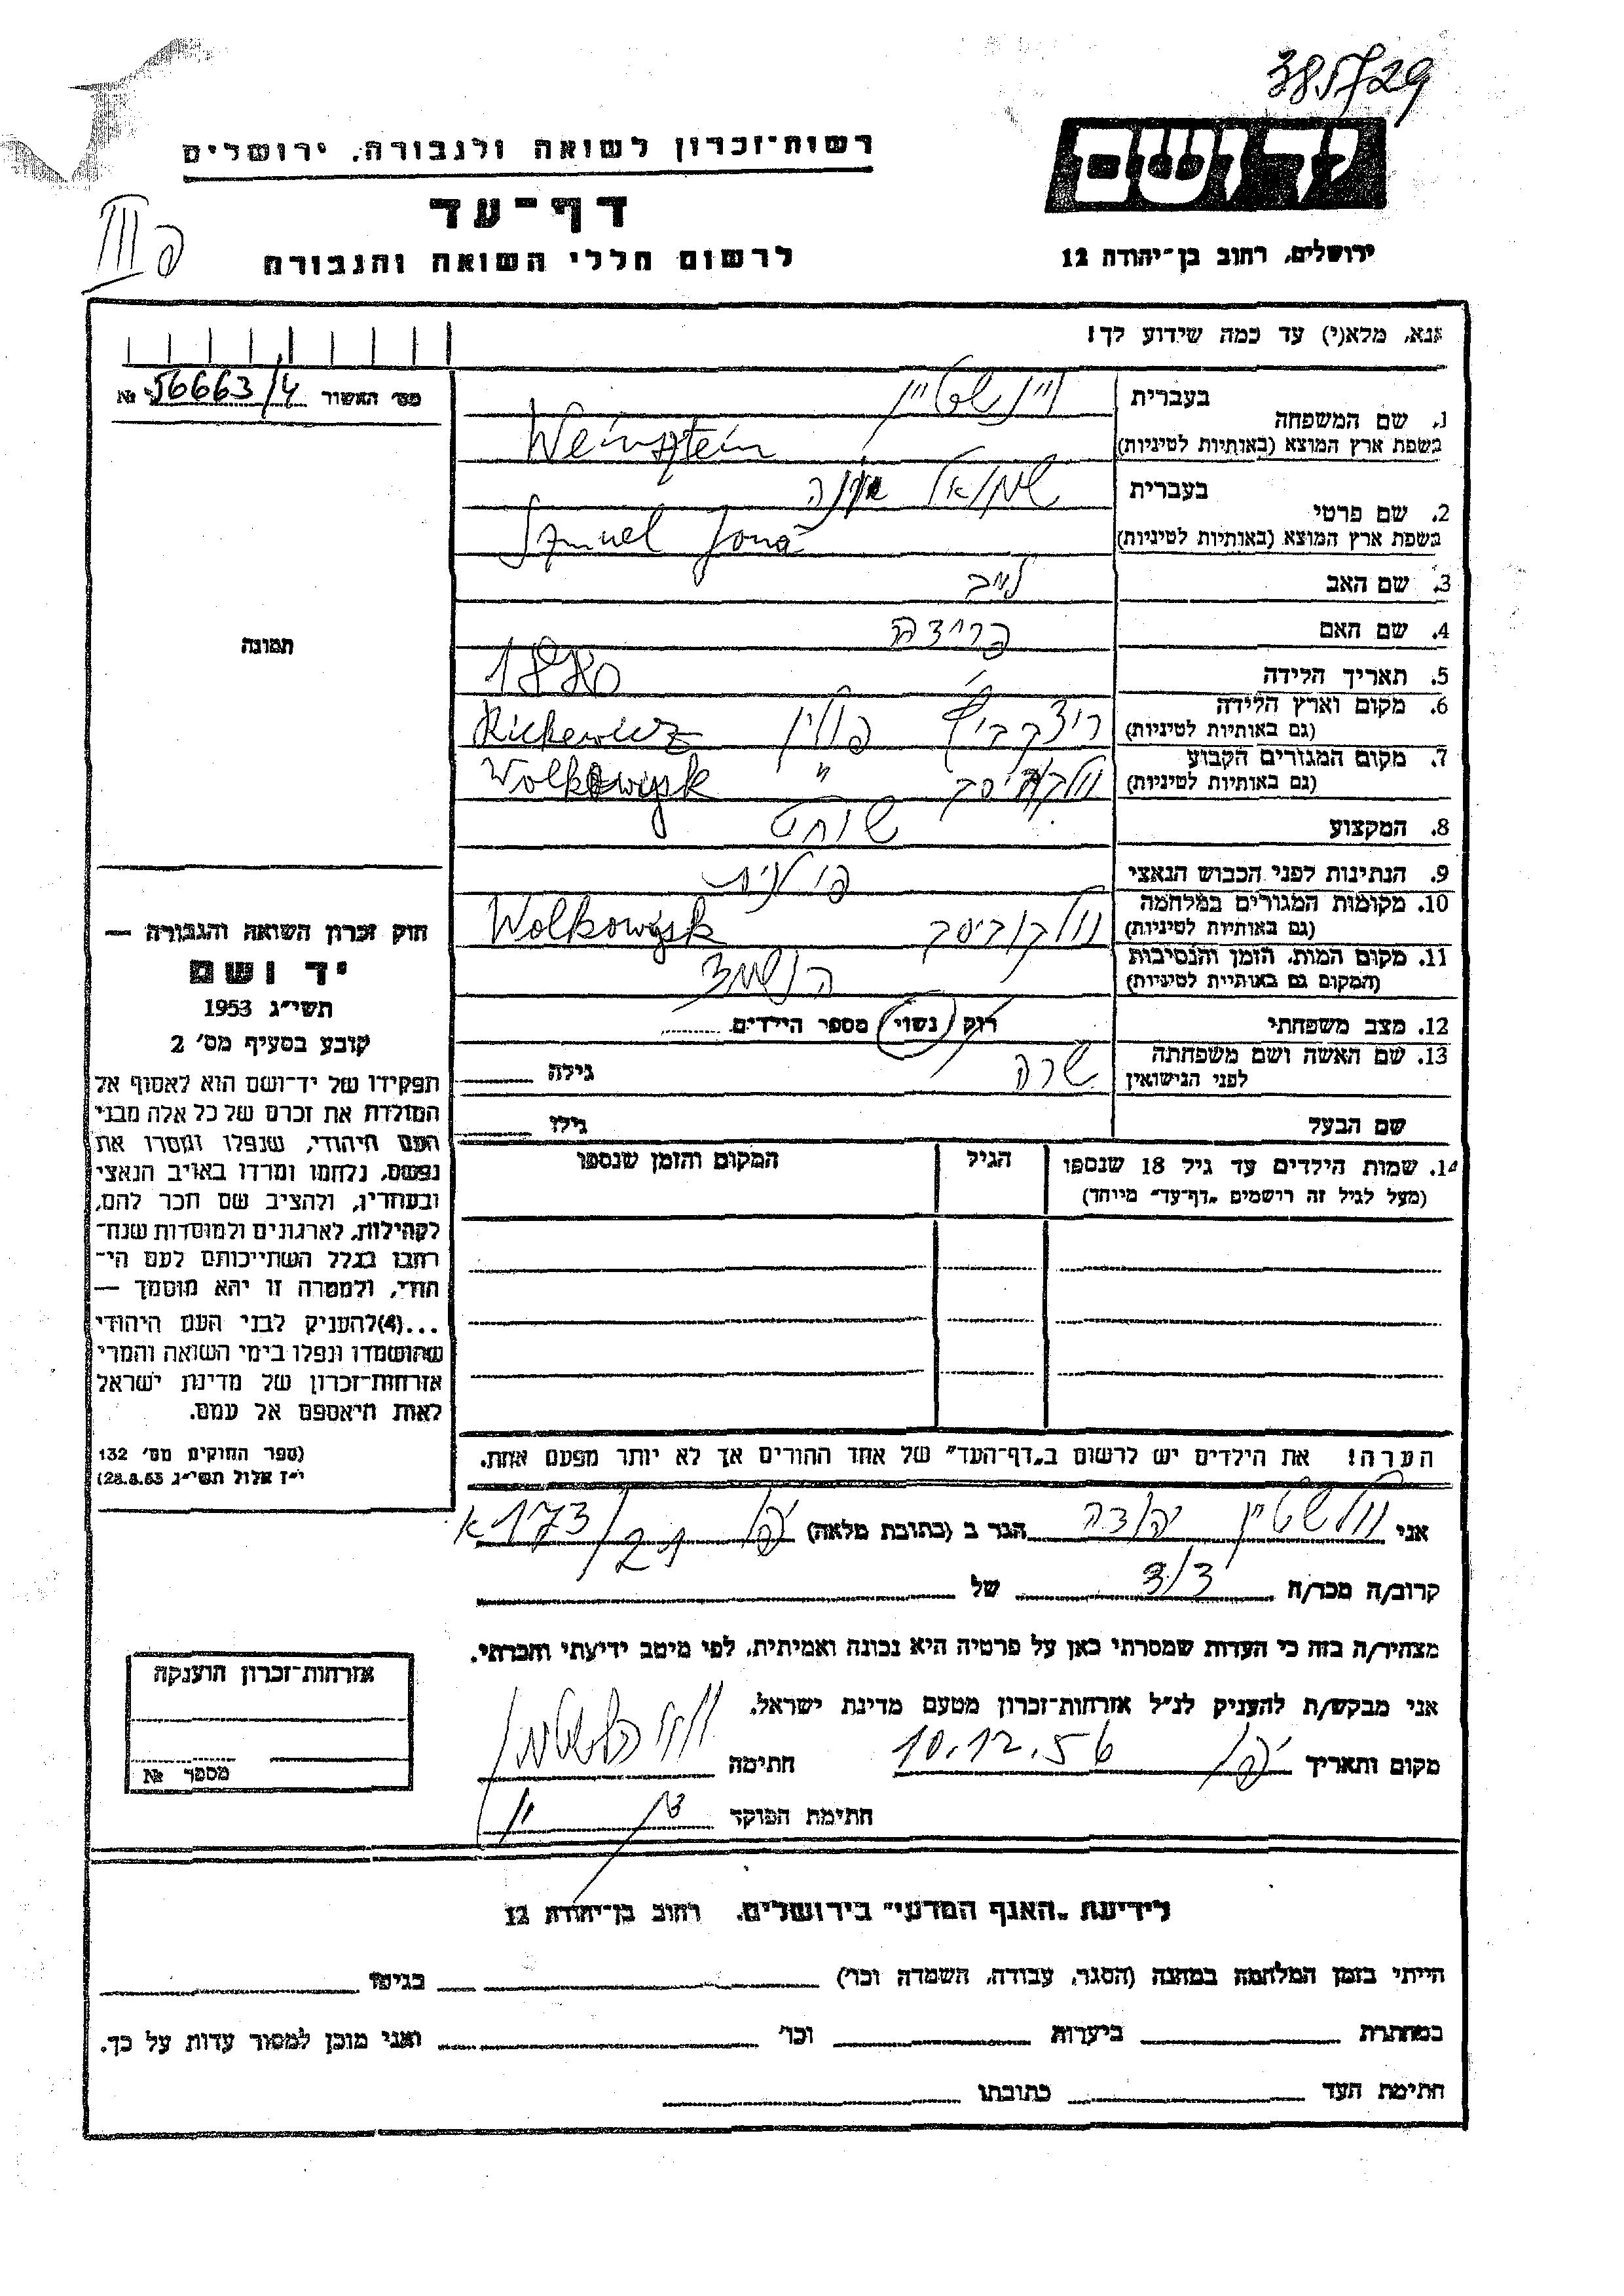 385729
רשות־זכרון לשואה ולגבורה, ירושלים
יד ושם
דף־עד
לרשום חללי השואה והגבורה
ירושלים, רחוב בן־יהודה 12
III פ
נא, מלא(י) עד כמה שידוע לך!
מס׳ האשור 56663/4 №
1. שם המשפחה בעברית ויינשטיין
בשפת ארץ המוצא (באותיות לטיניות) Weinsztein
2. שם פרטי בעברית שמואל יונה
בשפת ארץ המוצא (באותיות לטיניות) Szmuel Jona
3. שם האב לייב
4. שם האם פריידה
5. תאריך הלידה 1880
6. מקום וארץ הלידה
(גם באותיות לטיניות) פולין
7. מקום המגורים הקבוע
(גם באותיות לטיניות) " Wolkowysk
8. המקצוע שוחט
9. הנתינות לפני הכבוש הנאצי פולנית
10. מקומות המגורים במלחמה
(גם באותיות לטיניות) וולקוביסק Wolkowysk
11. מקום המות, הזמן והנסיבות
(המקום גם באותיות לטיניות) הושמד
12. מצב משפחתי רוק / נשוי / מספר הילדים
13. שם האשה ושם משפחתה
לפני הנישואין שרה גילה
שם הבעל גילו
14. שמות הילדים עד גיל 18 שנספו
(מעל לגיל זה רושמים „דף־עד״ מיוחד)
הגיל
המקום והזמן שנספו
תמונה
חוק זכרון השואה והגבורה —
יד ושם
תשי״ג 1953
קובע בסעיף מס׳ 2
תפקידו של יד־ושם הוא לאסוף אל
המולדת את זכרם של כל אלה מבני
העם היהודי, שנפלו ומסרו את
נפשם, נלחמו ומרדו באויב הנאצי
ובעוזריו, ולהציב שם וזכר להם,
לקהילות, לארגונים ולמוסדות שנח־
רבו בגלל השתייכותם לעם הי־
הודי, ולמטרה זו יהא מוסמך —
...(4) להעניק לבני העם היהודי
שהושמדו ונפלו בימי השואה והמרי
אזרחות־זכרון של מדינת ישראל
לאות היאספם אל עמם.
(ספר החוקים מס׳ 132
י״ז אלול תשי״ג 28.8.53)
הערה! את הילדים יש לרשום ב„דף־העד״ של אחד ההורים אך לא יותר מפעם אחת.
אני יהודה הגר ב (כתובת מלאה) יפו
קרוב/ה מכר/ה של
מצהיר/ה בזה כי העדות שמסרתי כאן על פרטיה היא נכונה ואמיתית, לפי מיטב ידיעתי והכרתי.
אני מבקש/ת להעניק לנ״ל אזרחות־זכרון מטעם מדינת ישראל.
מקום ותאריך יפו 10.12.56 חתימה
חתימת הפוקד
אזרחות־זכרון הוענקה
מספר №
לידיעת „האגף המדעי״ בירושלים, רחוב בן־יהודה 12
הייתי בזמן המלחמה במחנה (הסגר, עבודה, השמדה וכו׳) בגיטו
במחתרת ביערות וכו׳ ואני מוכן למסור עדות על כך.
חתימת העד כתובתו